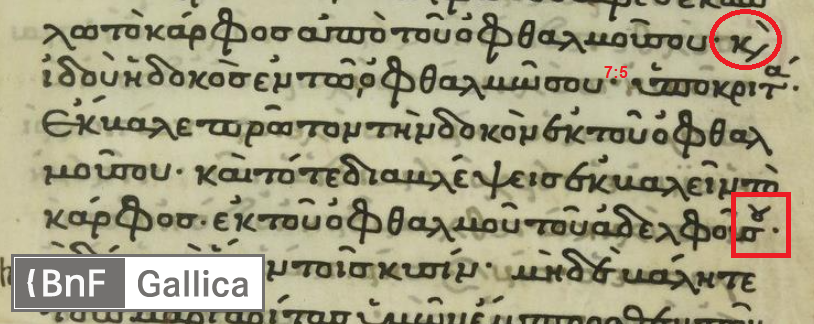 λω το κάρφοσ απὸ τοῦ ὀφθαλμοῦ σου· κ̀
ἰδοὺ ἡ δοκὸσ ἐν τῶ ὀφθαλμῶ σου· 7:5 ὑποκριτά·
ἔκβαλε πρῶτον τὴν δοκὸν ἐκ τοῦ ὀφθαλ
μοῦ σου· καὶ τότε διαβλέψεισ ἐκβαλεῖν τὸ
κάρφοσ· ἐκ τοῦ ὀφθαλμοῦ τοῦ ἀδελφοῦ σου·
τοῖσ κυσίν· μηδὲ βάλητε
BnF Gallica